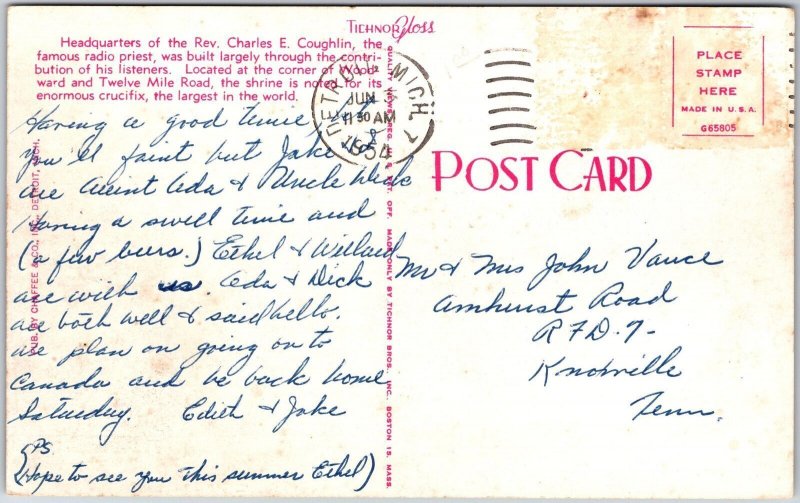 TICHNOR Gloss
Headquarters of the Rev. Charles E. Coughlin, the
famous radio priest, was built largely through the contri-
bution of his listeners. Located at the corner of Wood-
ward and Twelve Mile Road, the shrine is noted for its
enormous crucifix, the largest in the world.
Having a good time
you'll faint but Jake
are Aunt Ada & Uncle Dick
Having a swell time and
(a few beers.) Ethel & Willard
are with us. Ada & Dick
are both well & said hello.
we plan on going on to
Canada and be back home
Saturday. Edith & Jake
PS
(Hope to see you this summer Ethel)
PUB. BY CHAFFEE & CO., INC., DETROIT, MICH.
QUALITY VIEWS REG. U.S. PAT. OFF. MADE ONLY BY TICHNOR BROS. INC. BOSTON 15, MASS.
DETROIT, MICH. 7
JUN
11 30 AM
1954
PLACE
STAMP
HERE
MADE IN U.S.A.
G65805
POST CARD
Mr & Mrs John Vance
Amhurst Road
RFD-7-
Knoxville
Tenn.